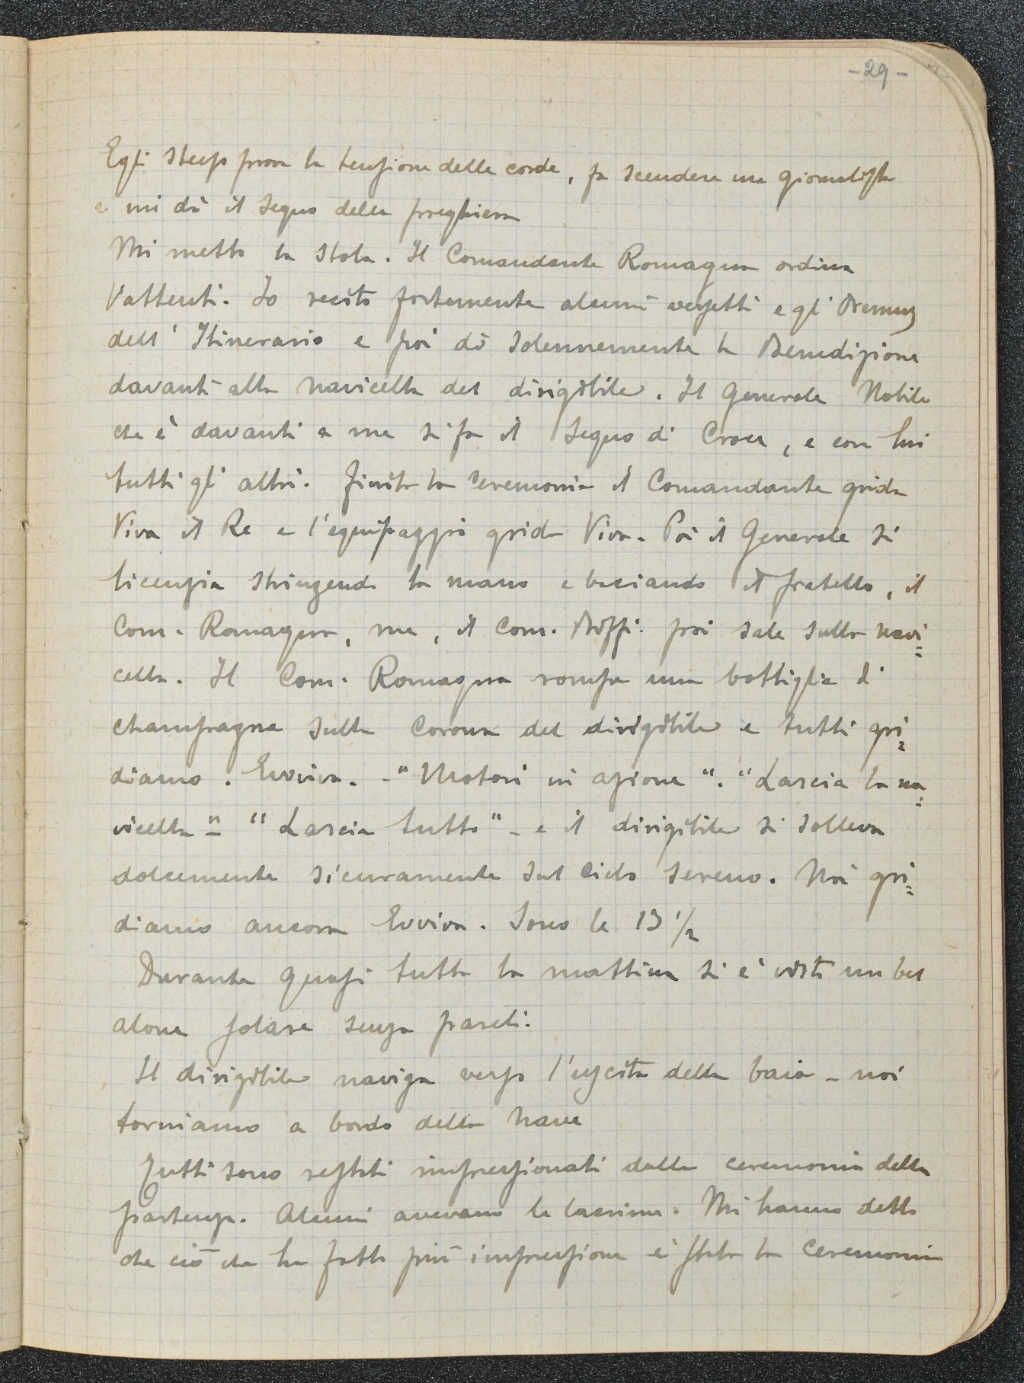 -29-
Egli stesso prova la tensione delle corde, fa scendere un giornalista
e mi dà il segno della preghiera
Mi metto la stola. Il Comandante Romagna ordina
l'attenti. Io recito fortemente alcuni versetti e gl' Oremus
dell' Itinerario e poi dò solennemente la Benedizione
davanti alla navicella del dirigibile. Il Generale Nobile
che è davanti a me si fa il segno di Croce, e con lui
tutti gli altri. Finita la ceremonia il Comandante grida
Viva il Re e l'equipaggio grida Viva. Poi il Generale si
licenzia stringendo la mano e baciando il fratello, il
Com. Romagna, me, il Com. poi sale sulla navi=
cella. Il Com. Romagna rompe una bottiglia di
champagne sulla corona del dirigibile e tutti gri=
diamo. Evviva. - "Motori in azione". "Lascia la na=
vicella" - "Lascia tutto" - e il dirigibile si solleva
dolcemente sicuramente sul cielo sereno. Noi gri=
diamo ancora Evviva. Sono le 13 1/2
Durante quasi tutta la mattina si è visto un bel
alone solare senza pareli.
Il dirigibile naviga verso l'uscita della baia - noi
torniamo a bordo della nave
Tutti sono restati impressionati della ceremonia della
partenza. Alcuni avevano le lacrime. Mi hanno detto
che ciò che ha fatto più impressione è stata la ceremonia